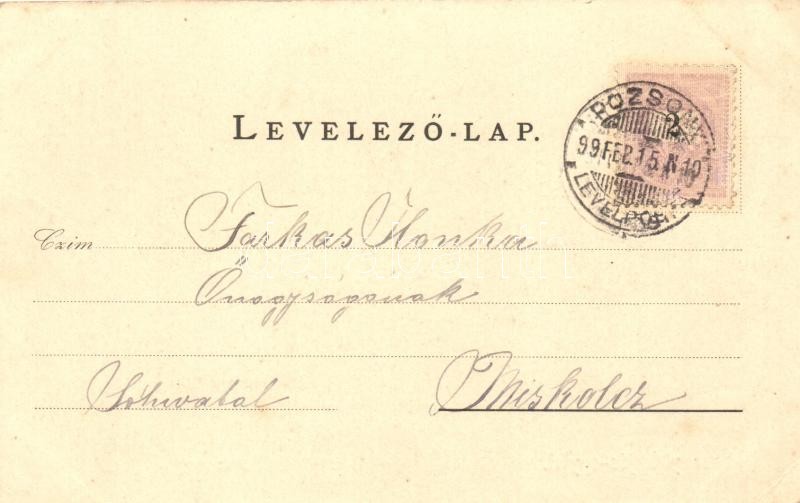 LEVELEZŐ-LAP.
POZSONY
2
99 FEB. 15. N10
LEVELPOSTA
Czim Farkas Ilonka
Őnagyságának
Sóhivatal Miskolcz